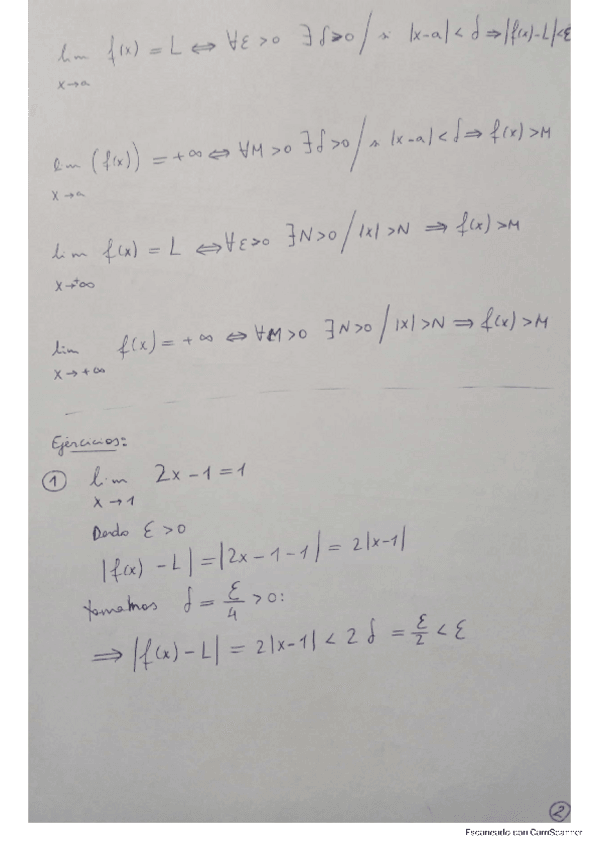 lim f(x) = L ⇔ ∀ε > 0 ∃δ > 0 / si |x-a| < δ ⇒ |f(x)-L| < ε
x→a
lim (f(x)) = +∞ ⇔ ∀M > 0 ∃δ > 0 / si |x-a| < δ ⇒ f(x) > M
x→a
lim f(x) = L ⇔ ∀ε > 0 ∃N > 0 / |x| > N ⇒ f(x) > M
x→+∞
lim f(x) = +∞ ⇔ ∀M > 0 ∃N > 0 / |x| > N ⇒ f(x) > M
x→+∞
Ejercicios:
① lim 2x - 1 = 1
x→1
Dado ε > 0
|f(x) - L| = |2x - 1 - 1| = 2|x-1|
tomamos δ = ε/4 > 0:
⇒ |f(x) - L| = 2|x-1| < 2δ = ε/2 < ε
②
Escaneado con CamScanner